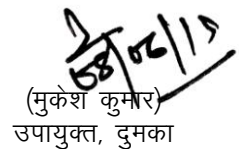 (मुकेश कुमार)
उपायुक्त, दुमका